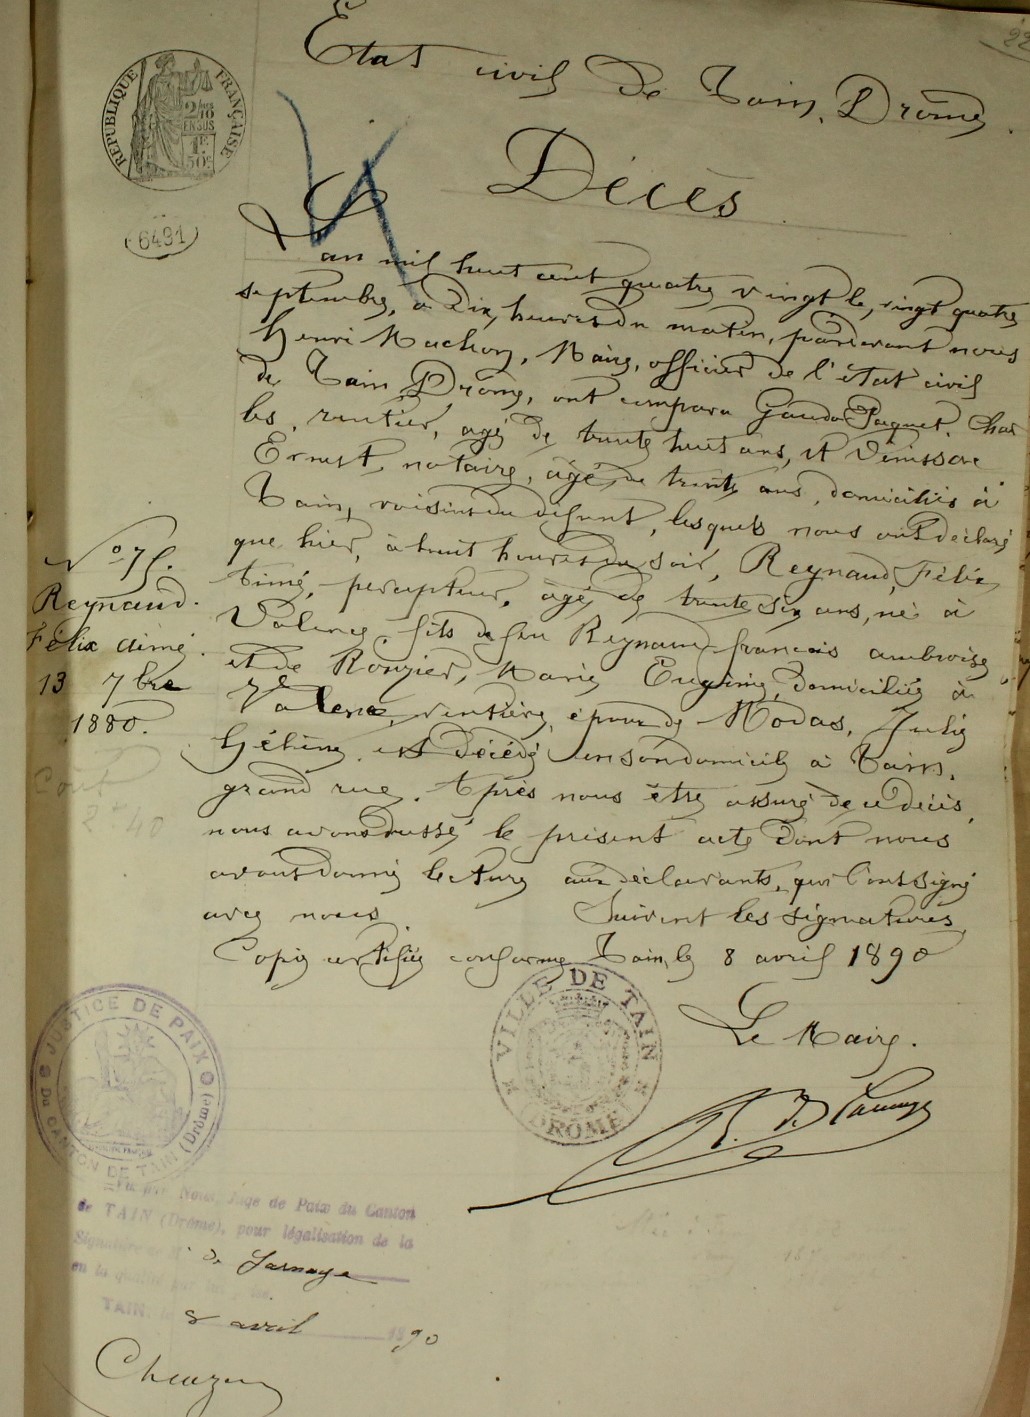 Etat civil de Tain, Drôme.
RÉPUBLIQUE FRANÇAISE
2/10 EN SUS
1F 50c
6491
Décès
L'an mil huit cent quatre vingt le, vingt quatre
septembre, à dix heures du matin, pardevant nous
Henri Machon, Maire, officier de l'état civil
de Tain Drôme, ont comparu Paquet, Char
les, rentier, agé de trente huit ans, et
Ernest, notaire, âgé de trente ans, domiciliés à
Tain, voisins du défunt, lesquels nous ont déclaré
que hier, à huit heures du soir, Reynaud, Félix
Aimé, percepteur, âgé de trente six ans, né à
Valence, fils de feu Reynaud françois ambroise
et de Rouzier, Marie Eugénie, domiciliée à
Valence, rentière, époux de Modas, Julie
Hélène, est décédé en son domicile à Tain,
grand rue. Après nous être assuré de ce décès,
nous avons dressé le présent acte dont nous
avons donné lecture aux déclarants, qui l'ont signé
avec nous. Suivent les signatures
Copie certifiée conforme Tain, le 8 avril 1890
Le Maire.
No 75.
Reynaud.
Félix aimé.
13 7bre
1880.
Coût
2 f 40
VILLE DE TAIN
(DRÔME)
JUSTICE DE PAIX
DU CANTON DE TAIN (Drôme)
Vu par Nous, Juge de Paix du Canton
de TAIN (Drôme), pour légalisation de la
Signature de M. de Larnage
en la qualité
TAIN, le 8 avril 1890